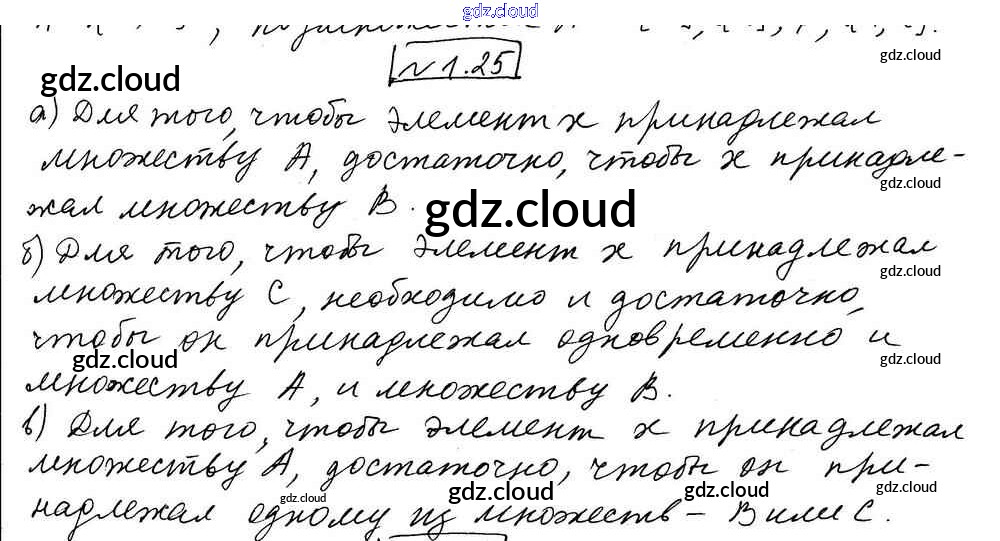 gdz.cloud
№ 1.25
gdz.cloud
gdz.cloud
а) Для того, чтобы элемент x принадлежал
множеству A, достаточно, чтобы x принадле-
gdz.cloud
жал множеству B.
gdz.cloud
б) Для того, чтобы элемент x принадлежал
gdz.cloud
множеству C, необходимо и достаточно,
чтобы он принадлежал одновременно и
gdz.cloud
gdz.cloud
множеству A, и множеству B.
в) Для того, чтобы элемент x принадлежал
множеству A, достаточно, чтобы он при-
gdz.cloud
gdz.cloud
gdz.cloud
надлежал одному из множеств - B или C.
gdz.cloud
gdz.cloud